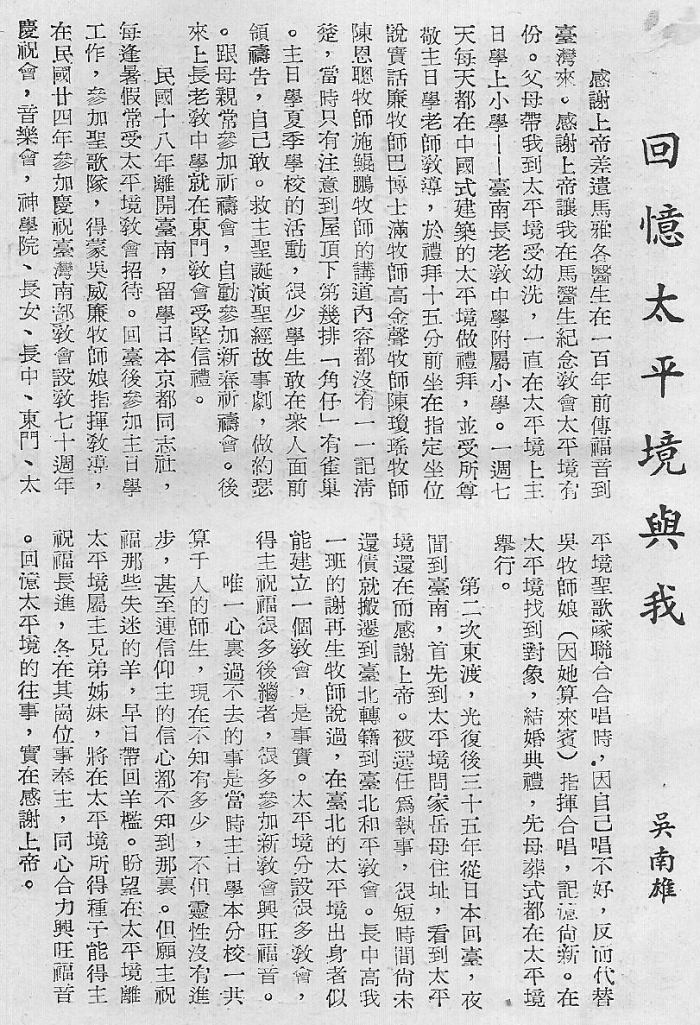 回憶太平境與我
吳南雄
感謝上帝差遣馬雅各醫生在一百年前傳福音到
臺灣來。感謝上帝讓我在馬醫生紀念教會太平境有
份。父母帶我到太平境受幼洗，一直在太平境上主
日學上小學——臺南長老教中學附屬小學。一週七
天每天都在中國式建築的太平境做禮拜，並受所尊
敬主日學老師教導，於禮拜十五分前坐在指定坐位
說實話廉牧師巴博士滿牧師高金聲牧師陳瓊瑤牧師
陳恩聰牧師施鯤鵬牧師的講道內容都沒有一一記淸
楚，當時只有注意到屋頂下第幾排「角仔」有雀巢
。主日學夏季學校的活動，很少學生敢在衆人面前
領禱告，自己敢。救主聖誕演聖經故事劇，做約瑟
。跟母親常參加祈禱會，自動參加新春祈禱會。後
來上長老教中學就在東門教會受堅信禮。
民國十八年離開臺南，留學日本京都同志社，
每逢暑假常受太平境教會招待。回臺後參加主日學
工作，參加聖歌隊，得蒙吳威廉牧師娘指揮教導，
在民國廿四年參加慶祝臺灣南部教會設教七十週年
慶祝會，音樂會，神學院、長女、長中、東門、太
平境聖歌隊聯合合唱時，因自己唱不好，反而代替
吳牧師娘（因她算來賓）指揮合唱，記憶尚新。在
太平境找到對象，結婚典禮，先母葬式都在太平境
舉行。
第二次東渡，光復後三十五年從日本回臺，夜
間到臺南，首先到太平境問家岳母住址，看到太平
境還在而感謝上帝。被選任爲執事，很短時間尚未
還債就搬遷到臺北轉籍到臺北和平教會。長中高我
一班的謝再生牧師說過，在臺北的太平境出身者似
能建立一個教會，是事實。太平境分設很多教會，
得主祝福很多後繼者，很多參加新教會興旺福音。
唯一心裏過不去的事是當時主日學本分校一共
算千人的師生，現在不知有多少，不但靈性沒有進
步，甚至連信仰主的信心都不知到那裏。但願主祝
福那些失迷的羊，早日帶回羊檻。盼望在太平境離
太平境屬主兄弟姊妹，將在太平境所得種子能得主
祝福長進，各在其崗位事奉主，同心合力興旺福音
。回憶太平境的往事，實在感謝上帝。